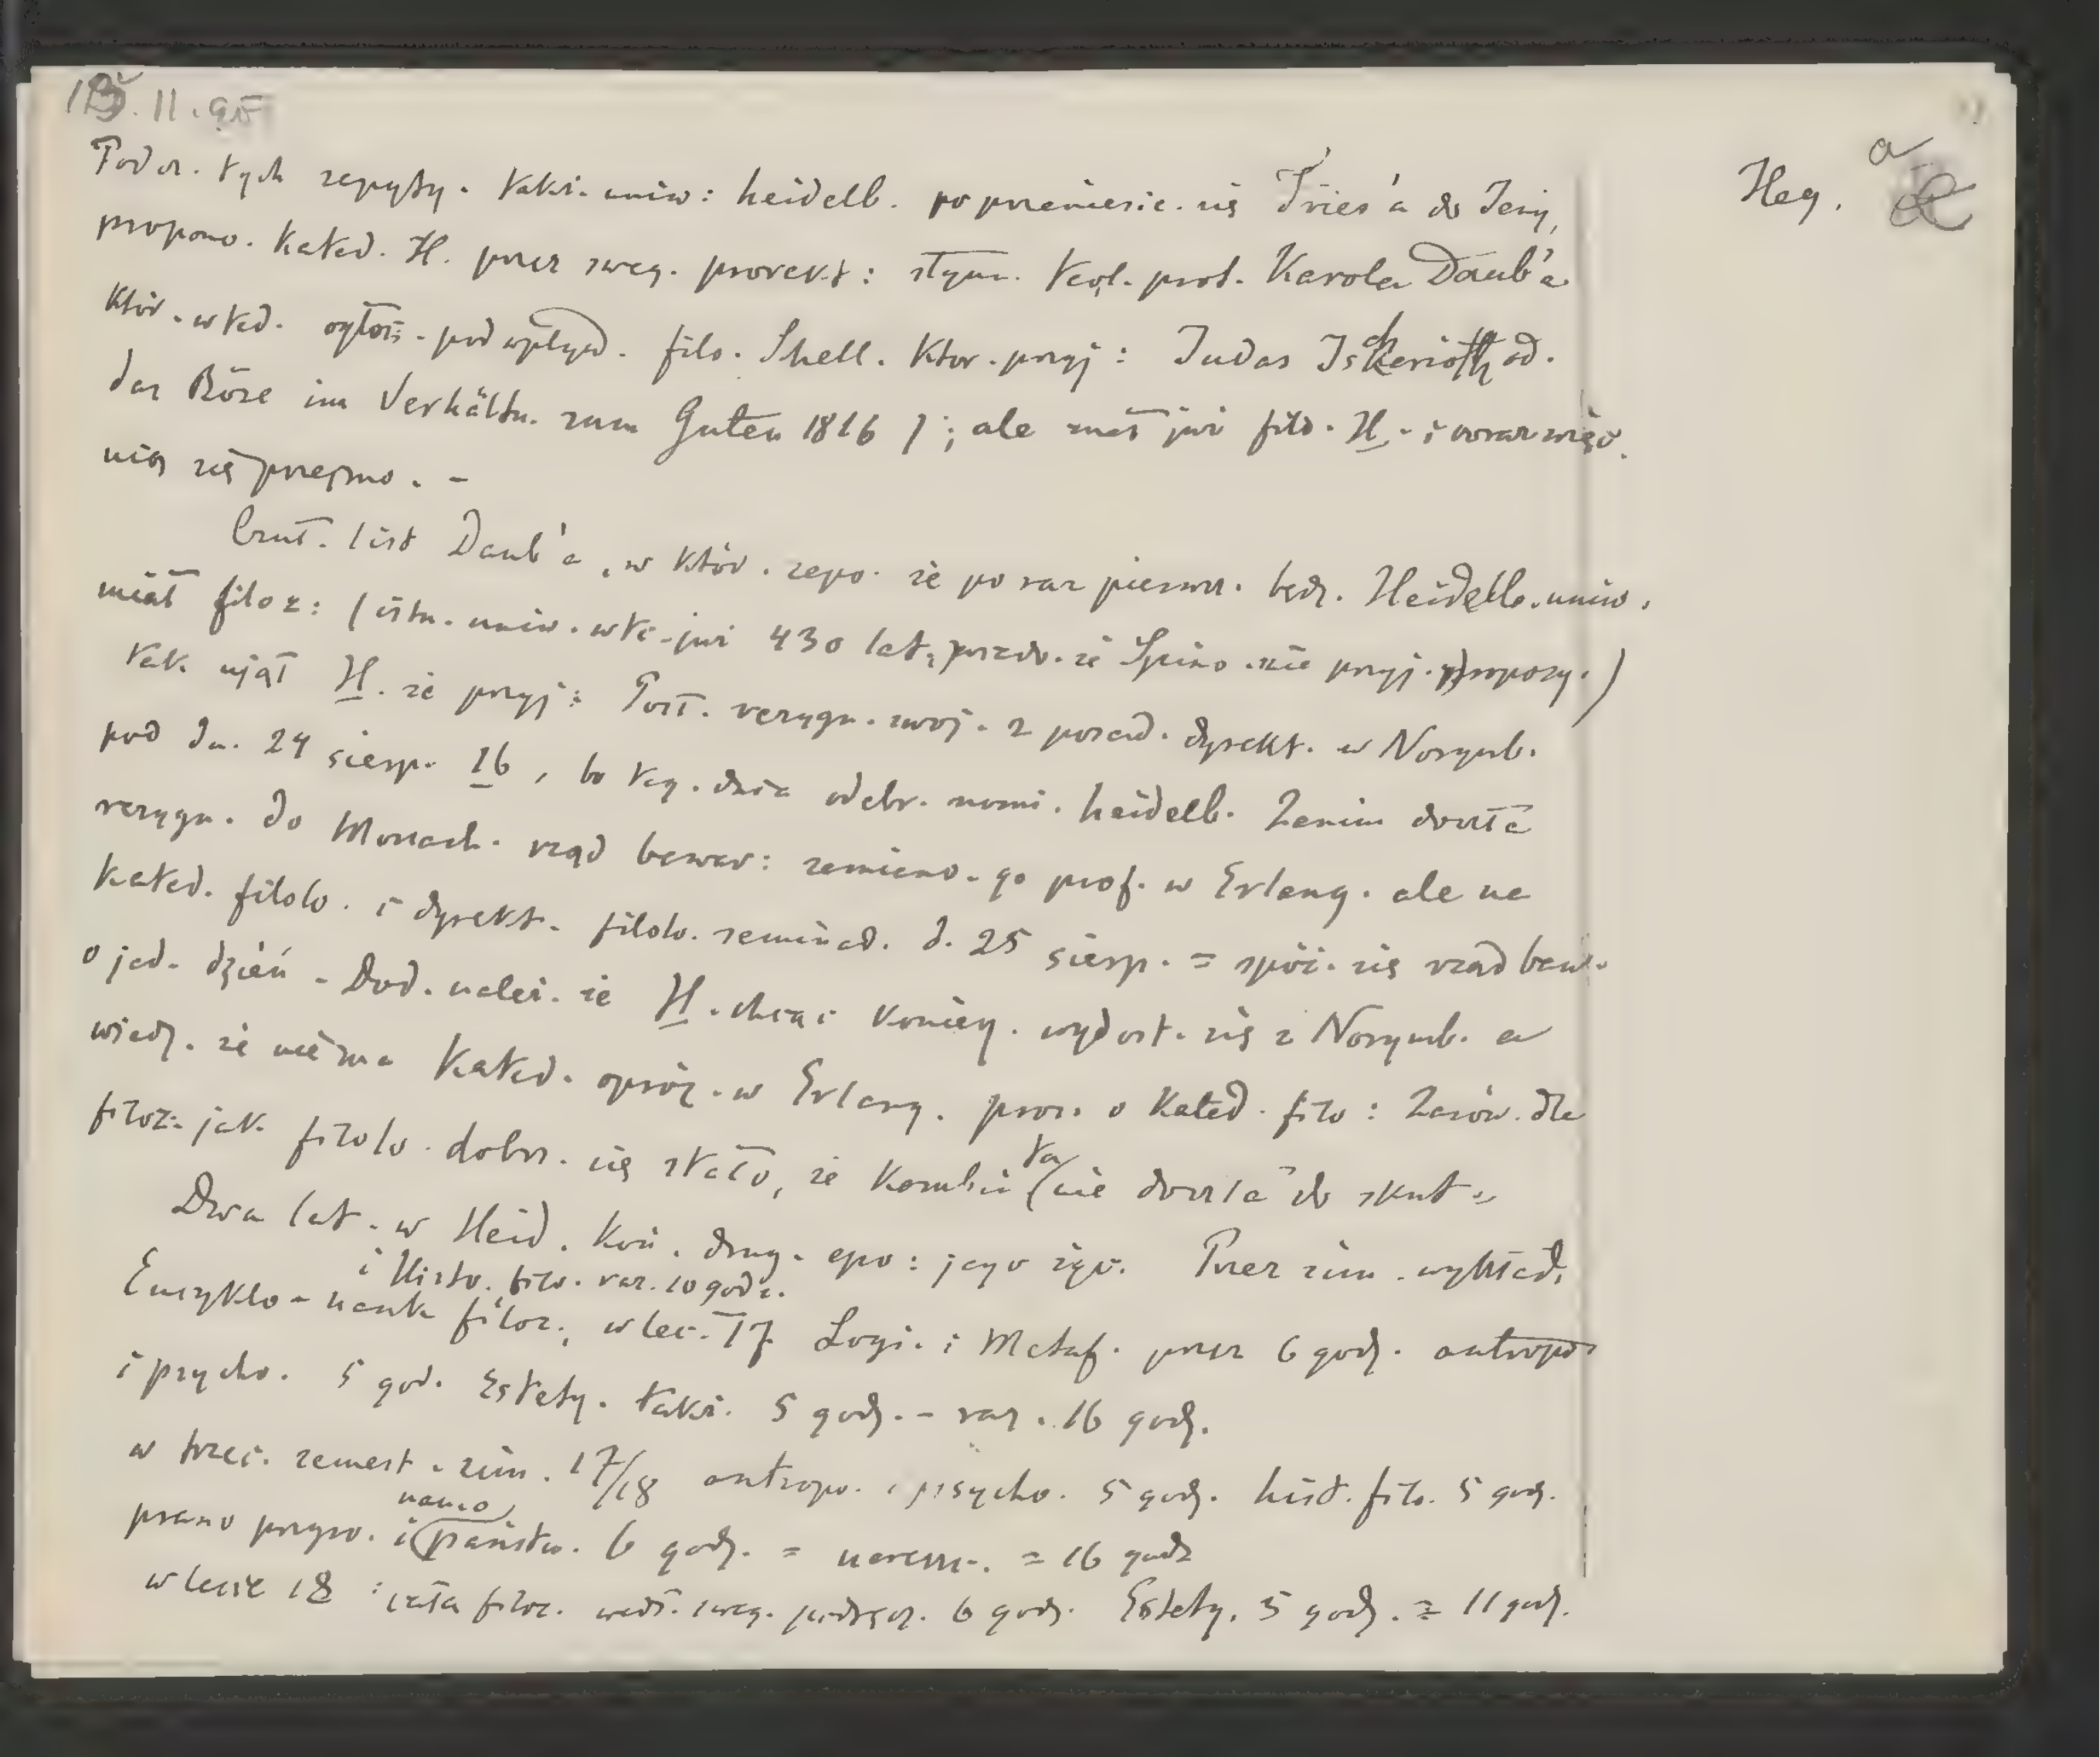 13. II. 95
Heg. a
Podcz. tych zapyty. takż. uniw: heidelb. po przeniesie. się Fries'a do Jeny,
propono. kated. H. przez sweg. prorekt: słynn. teol. prof. Karola Daub'a
któr. wted. ogłos. pod wpływ. filo. Shell. któr. przyj: Judas Ischarioth od.
das Böse im Verhältn. zum Guten 1816); ale znał już filo. H. i coraz więc.
nią się przejmo. -
Czuł. list Daub'a, w któr. zapo. że po raz pierwsz. będz. Heidelb. uniw.
miał filoz: (istn. uniw. wte. już 430 lat, prawdo. że Spino. nie przyj. propozy.)
tak ujął H. że przyj: Posł. rezygn. swoj. z posad. dyrekt. w Norymb.
pod dn. 24 sierp. 16, bo teg. dnia odebr. nomi. heidelb. Zanim doszła
rezygn. do Monach. rząd bawar: zamiano. go prof. w Erlang. ale na
kated. filolo. i dyrekt. filolo. seminar. d. 25 sierp. = spóź. się rząd baw.
o jed. dzień. Dod. należ. że H. chcąc koniecz. wydost. się z Norymb. a
wiedz. że niema kated. opróż. w Erlang. pros. o kated. filo: Zarów. dla
filoz. jak filolo. dobrz. się stało, że kombin ta nie doszła do skut.
Dwa lat. w Heid. koń. drug. epo: jego życ. Przez zim. wykład.
i Histo. filo. raz. 10 godz.
Encyklo. nauk filoz., w lec. 17 Logi. i Metaf. przez 6 godz. antropo
i psycho. 5 god. Estety. także. 5 godz. - raz. 16 godz.
w trzec. semest. zim. 17/18 antropo. i psycho. 5 godz. hist. filo. 5 godz.
nauo
prawo przyro. i państw. 6 godz. = narescc. = 16 godz
w lecie 18 : cała filoz. wedł. sweg. podręcz. 6 godz. Estety. 5 godz. = 11 godz.